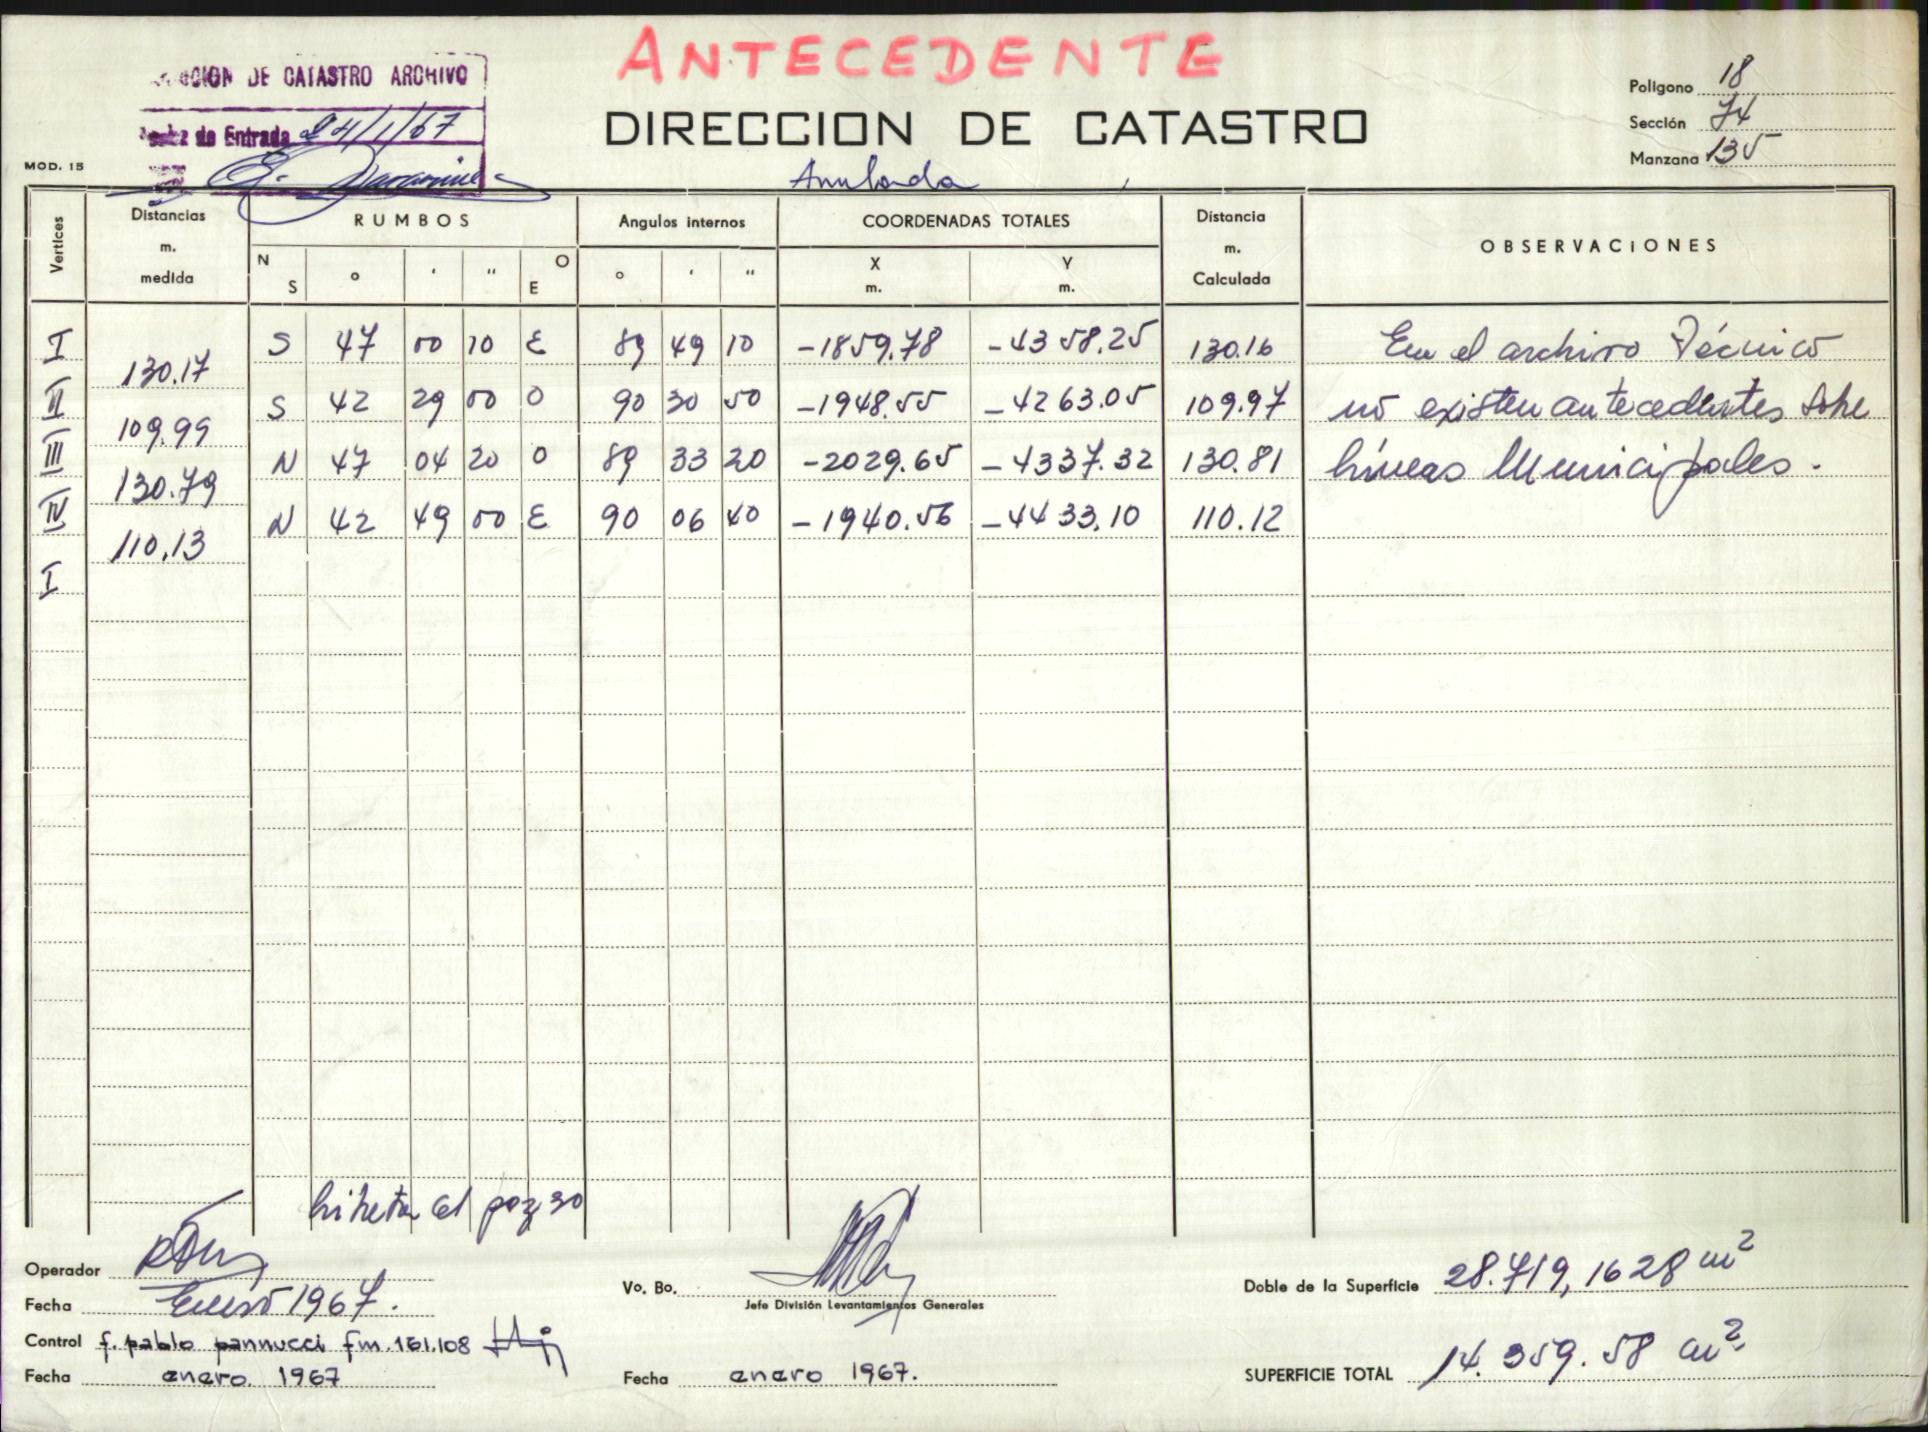 ANTECEDENTE
CCION DE CATASTRO ARCHIVO
de Entrada 24/1/67
DIRECCION DE CATASTRO
Anulada
Poligono 18
Sección 74
Manzana 135
MOD. 15
Vertices Distancias m. medida RUMBOS Angulos internos COORDENADAS TOTALES Distancia m. Calculada OBSERVACIONES
N S ° ' " O E ° ' " X m. Y m.
I S 47 00 10 E 89 49 10 -1859.78 -4358.25 130.16 En el archivo Técnico
130.17
II S 42 29 00 O 90 30 50 -1948.55 -4263.05 109.97 no existen antecedentes sobre
109.99
III N 47 04 20 O 89 33 20 -2029.65 -4337.32 130.81 líneas Municipales.
130.79
IV N 42 49 00 E 90 06 40 -1940.56 -4433.10 110.12
110.13
I
al
Operador
Fecha Enero 1967.
Control f. pablo pannucci fm. 161.108
Fecha enero 1967
Vo. Bo.
Jefe División Levantamientos Generales
Fecha enero 1967.
Doble de la Superficie 28.719,1628 m²
SUPERFICIE TOTAL 14.359.58 m²